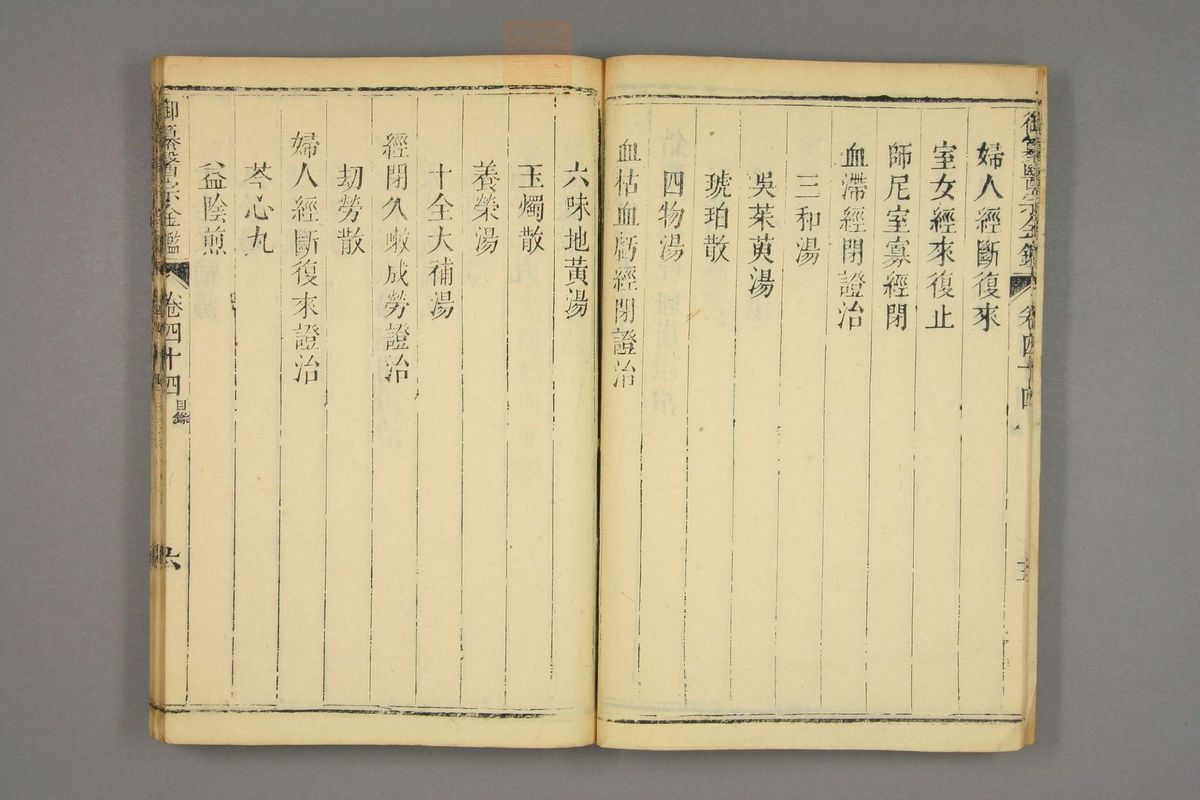 御纂醫宗金鑑 卷四十四
婦人經斷復來
室女經來復止
師尼室寡經閉
血滯經閉證治
三和湯
吳茱萸湯
琥珀散
四物湯
血枯血虧經閉證治
六味地黃湯
玉燭散
養榮湯
十全大補湯
經閉久嗽成勞證治
劫勞散
婦人經斷復來證治
芩心丸
益陰煎
御纂醫宗金鑑 卷四十四 目錄 六